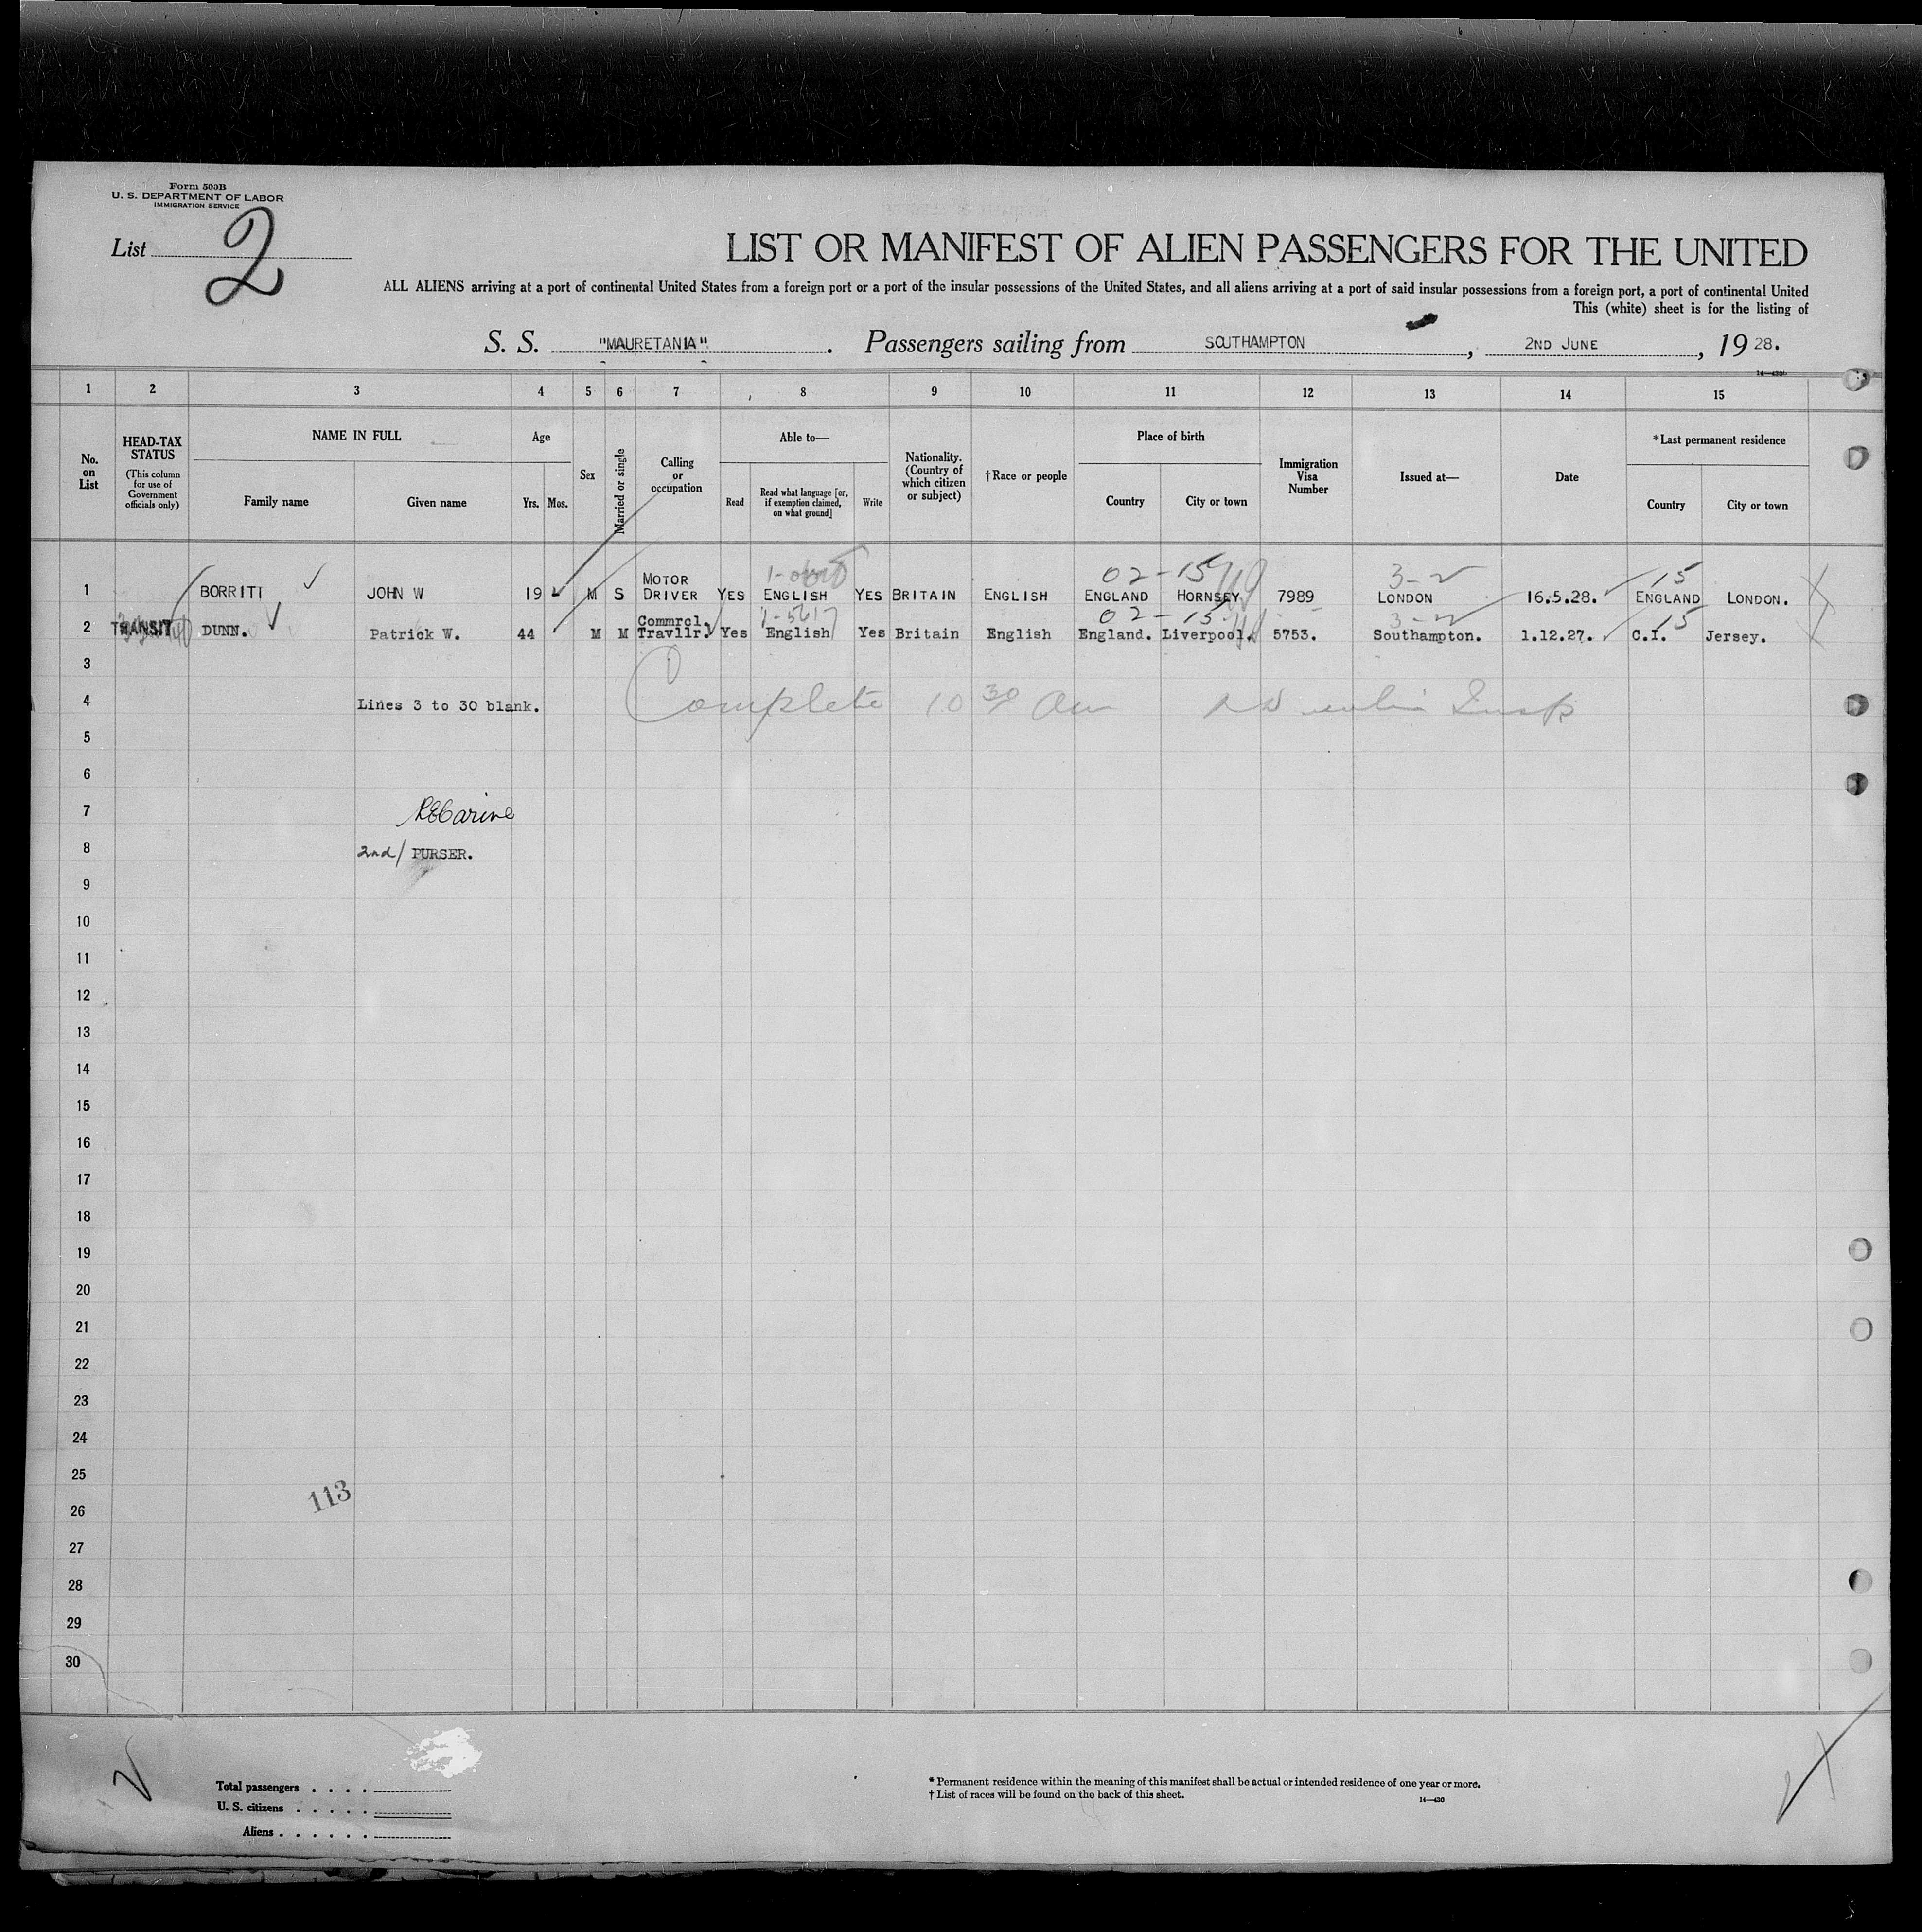 Form 500B
U. S. DEPARTMENT OF LABOR
IMMIGRATION SERVICE
List 2
LIST OR MANIFEST OF ALIEN PASSENGERS FOR THE UNITED
ALL ALIENS arriving at a port of continental United States from a foreign port or a port of the insular possessions of the United States, and all aliens arriving at a port of said insular possessions from a foreign port, a port of continental United
This (white) sheet is for the listing of
S. S. "MAURETANIA". Passengers sailing from SOUTHAMPTON, 2ND JUNE, 19 28.
1 2 3 4 5 6 7 8 9 10 11 12 13 14 15
No. on List
HEAD-TAX STATUS
(This column for use of Government officials only)
NAME IN FULL
Family name
Given name
Age
Yrs. Mos.
Sex
Married or single
Calling or occupation
Able to—
Read
Read what language [or, if exemption claimed, on what ground]
Write
Nationality. (Country of which citizen or subject)
†Race or people
Place of birth
Country
City or town
Immigration Visa Number
Issued at—
Date
*Last permanent residence
Country
City or town
02-15 3-2 15
1 BORRITT JOHN W 19 M S MOTOR DRIVER YES ENGLISH YES BRITAIN ENGLISH ENGLAND HORNSEY 7989 LONDON 16.5.28. ENGLAND LONDON.
02-15 3-2 15
2 TRANSIT DUNN. Patrick W. 44 M M Commrcl. Travllr. Yes English Yes Britain English England. Liverpool. 5753. Southampton. 1.12.27. C.I. Jersey.
3
4 Lines 3 to 30 blank. Complete 10 30 am
5
6
7
8 2nd/ PURSER.
9
10
11
12
13
14
15
16
17
18
19
20
21
22
23
24
25
113
26
27
28
29
30
Total passengers
U. S. citizens
Aliens
* Permanent residence within the meaning of this manifest shall be actual or intended residence of one year or more.
† List of races will be found on the back of this sheet.
14—430